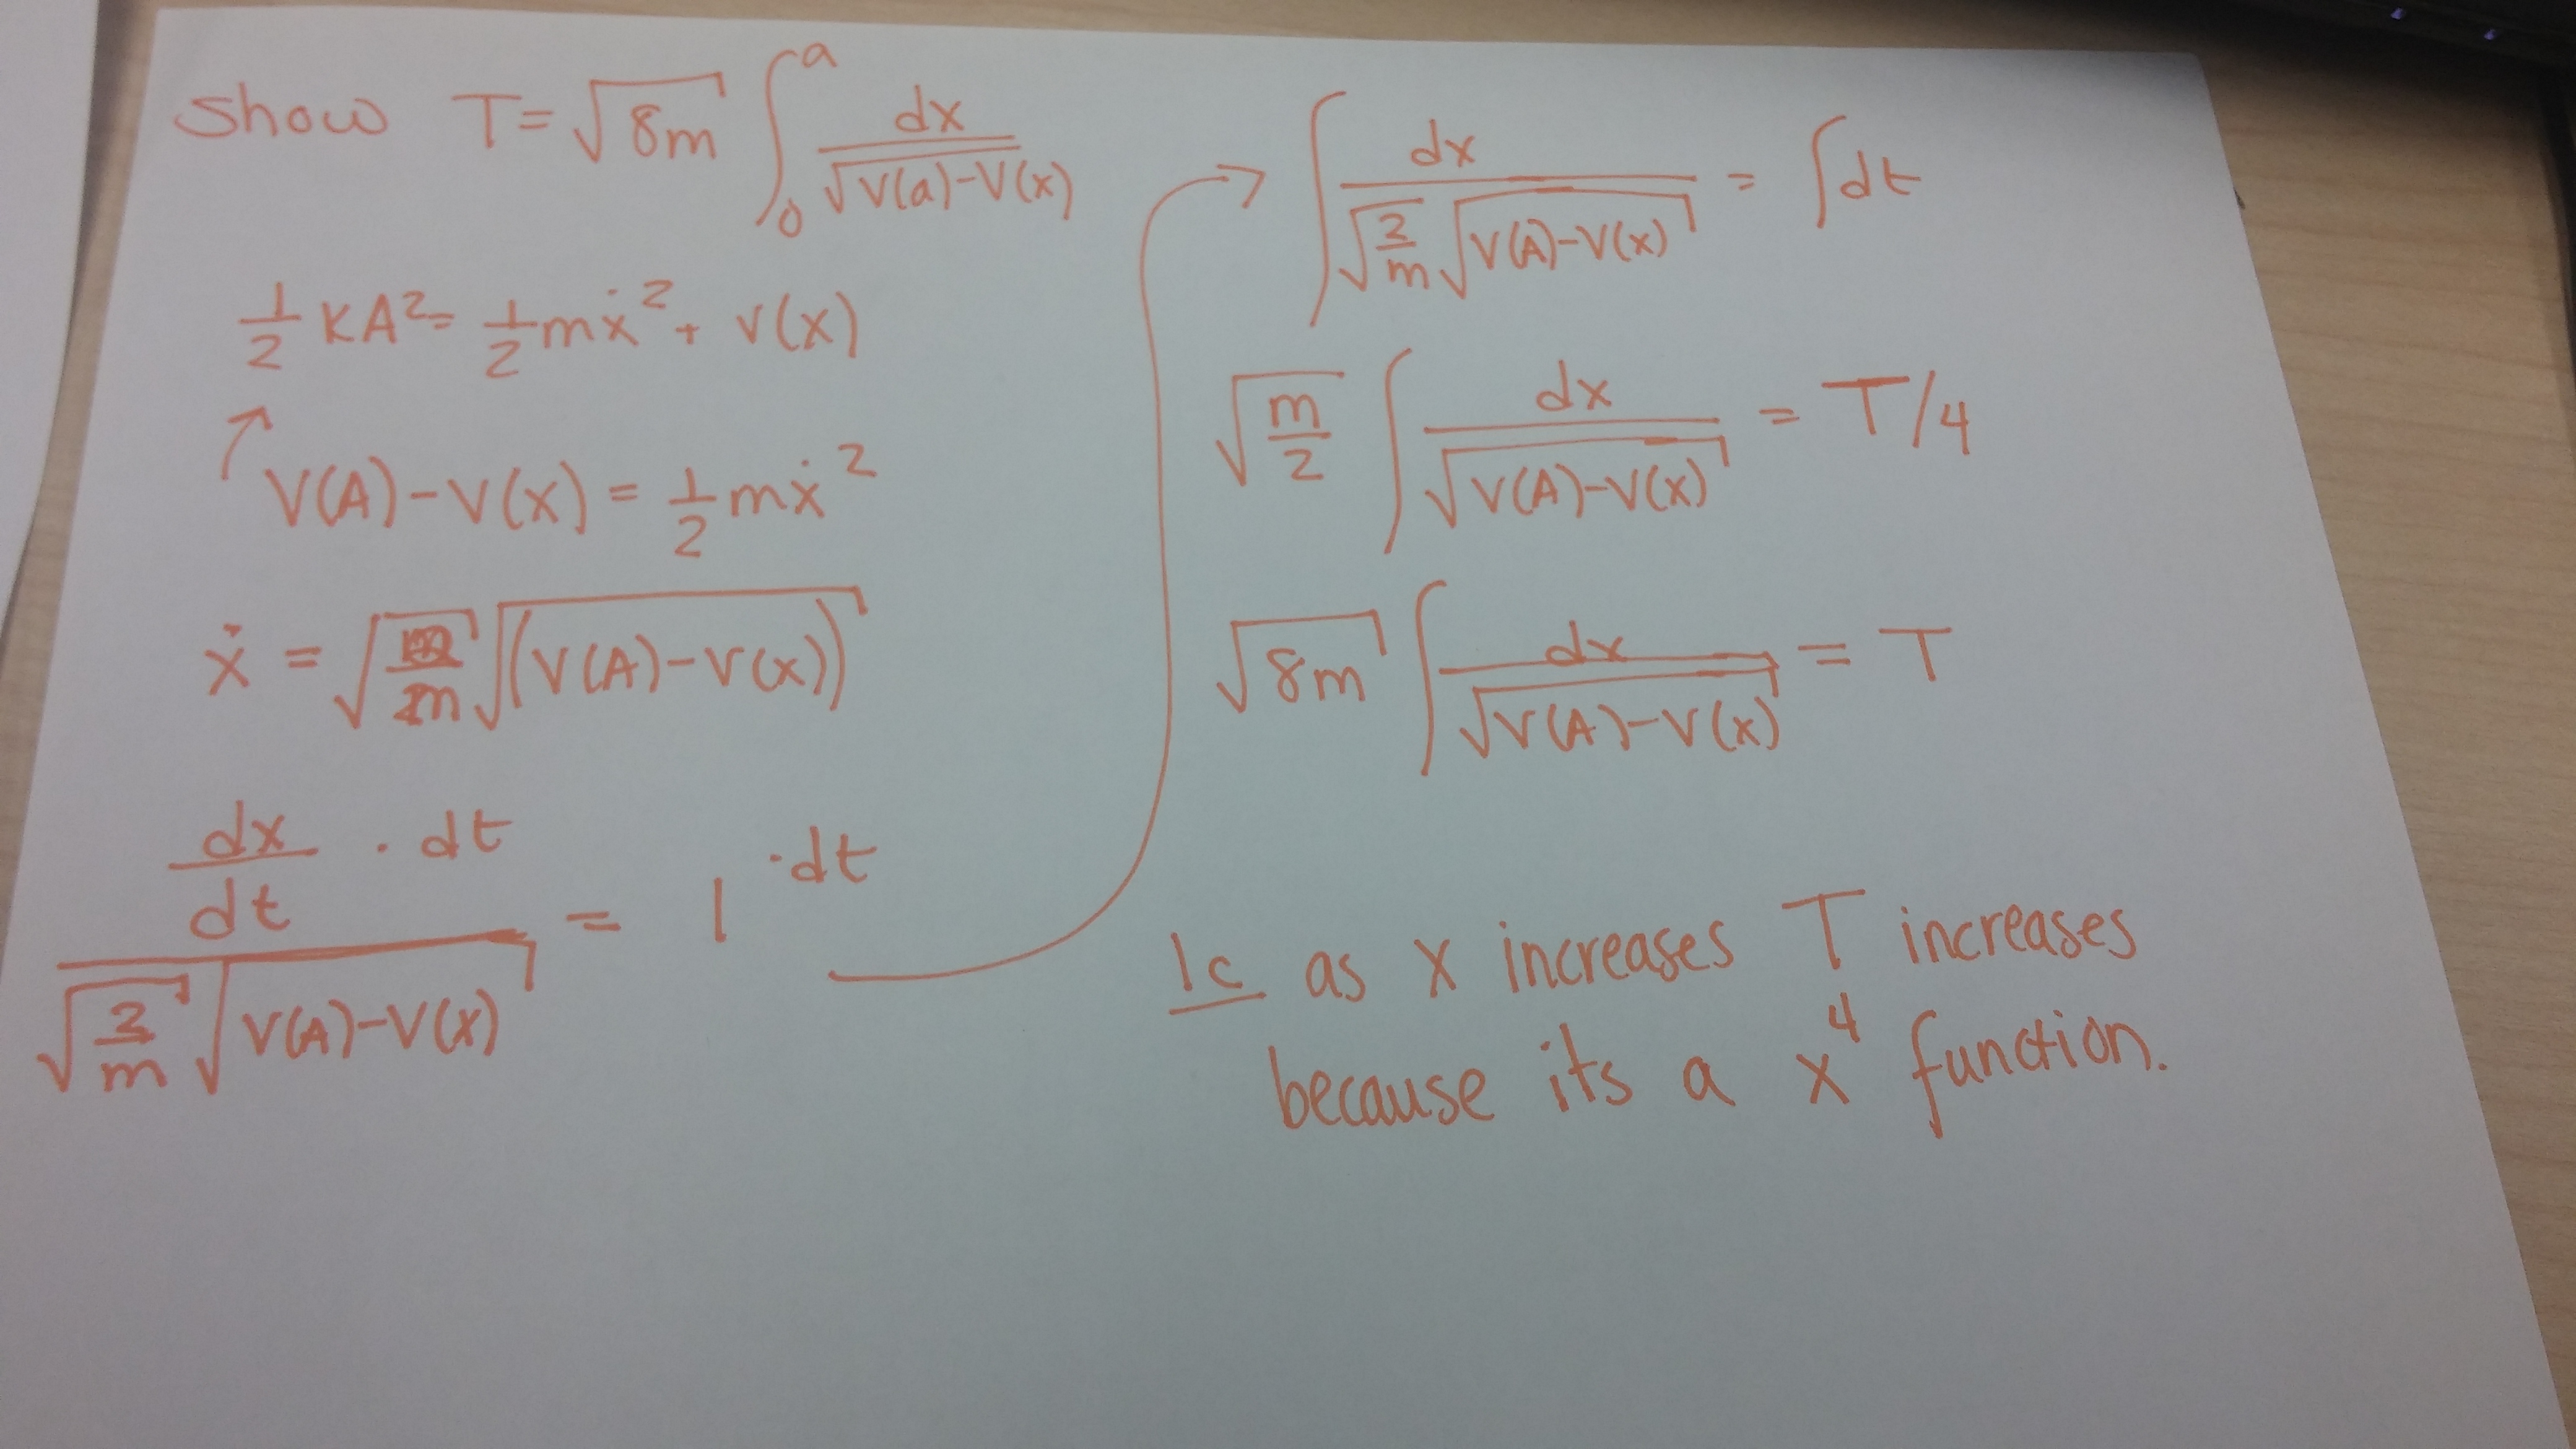 Show T = √8m ∫₀ᵃ dx / √V(a)-V(x)
1/2 KA² = 1/2 mẋ² + V(x)
↗ V(A)-V(x) = 1/2 mẋ²
ẋ = √2/m √(V(A)-V(x))
dx/dt · dt / √2/m √V(A)-V(x) = 1 · dt
→ ∫ dx / √2/m √V(A)-V(x) = ∫dt
√m/2 ∫ dx / √V(A)-V(x) = T/4
√8m ∫ dx / √V(A)-V(x) = T
1c as x increases T increases
because its a x⁴ function.